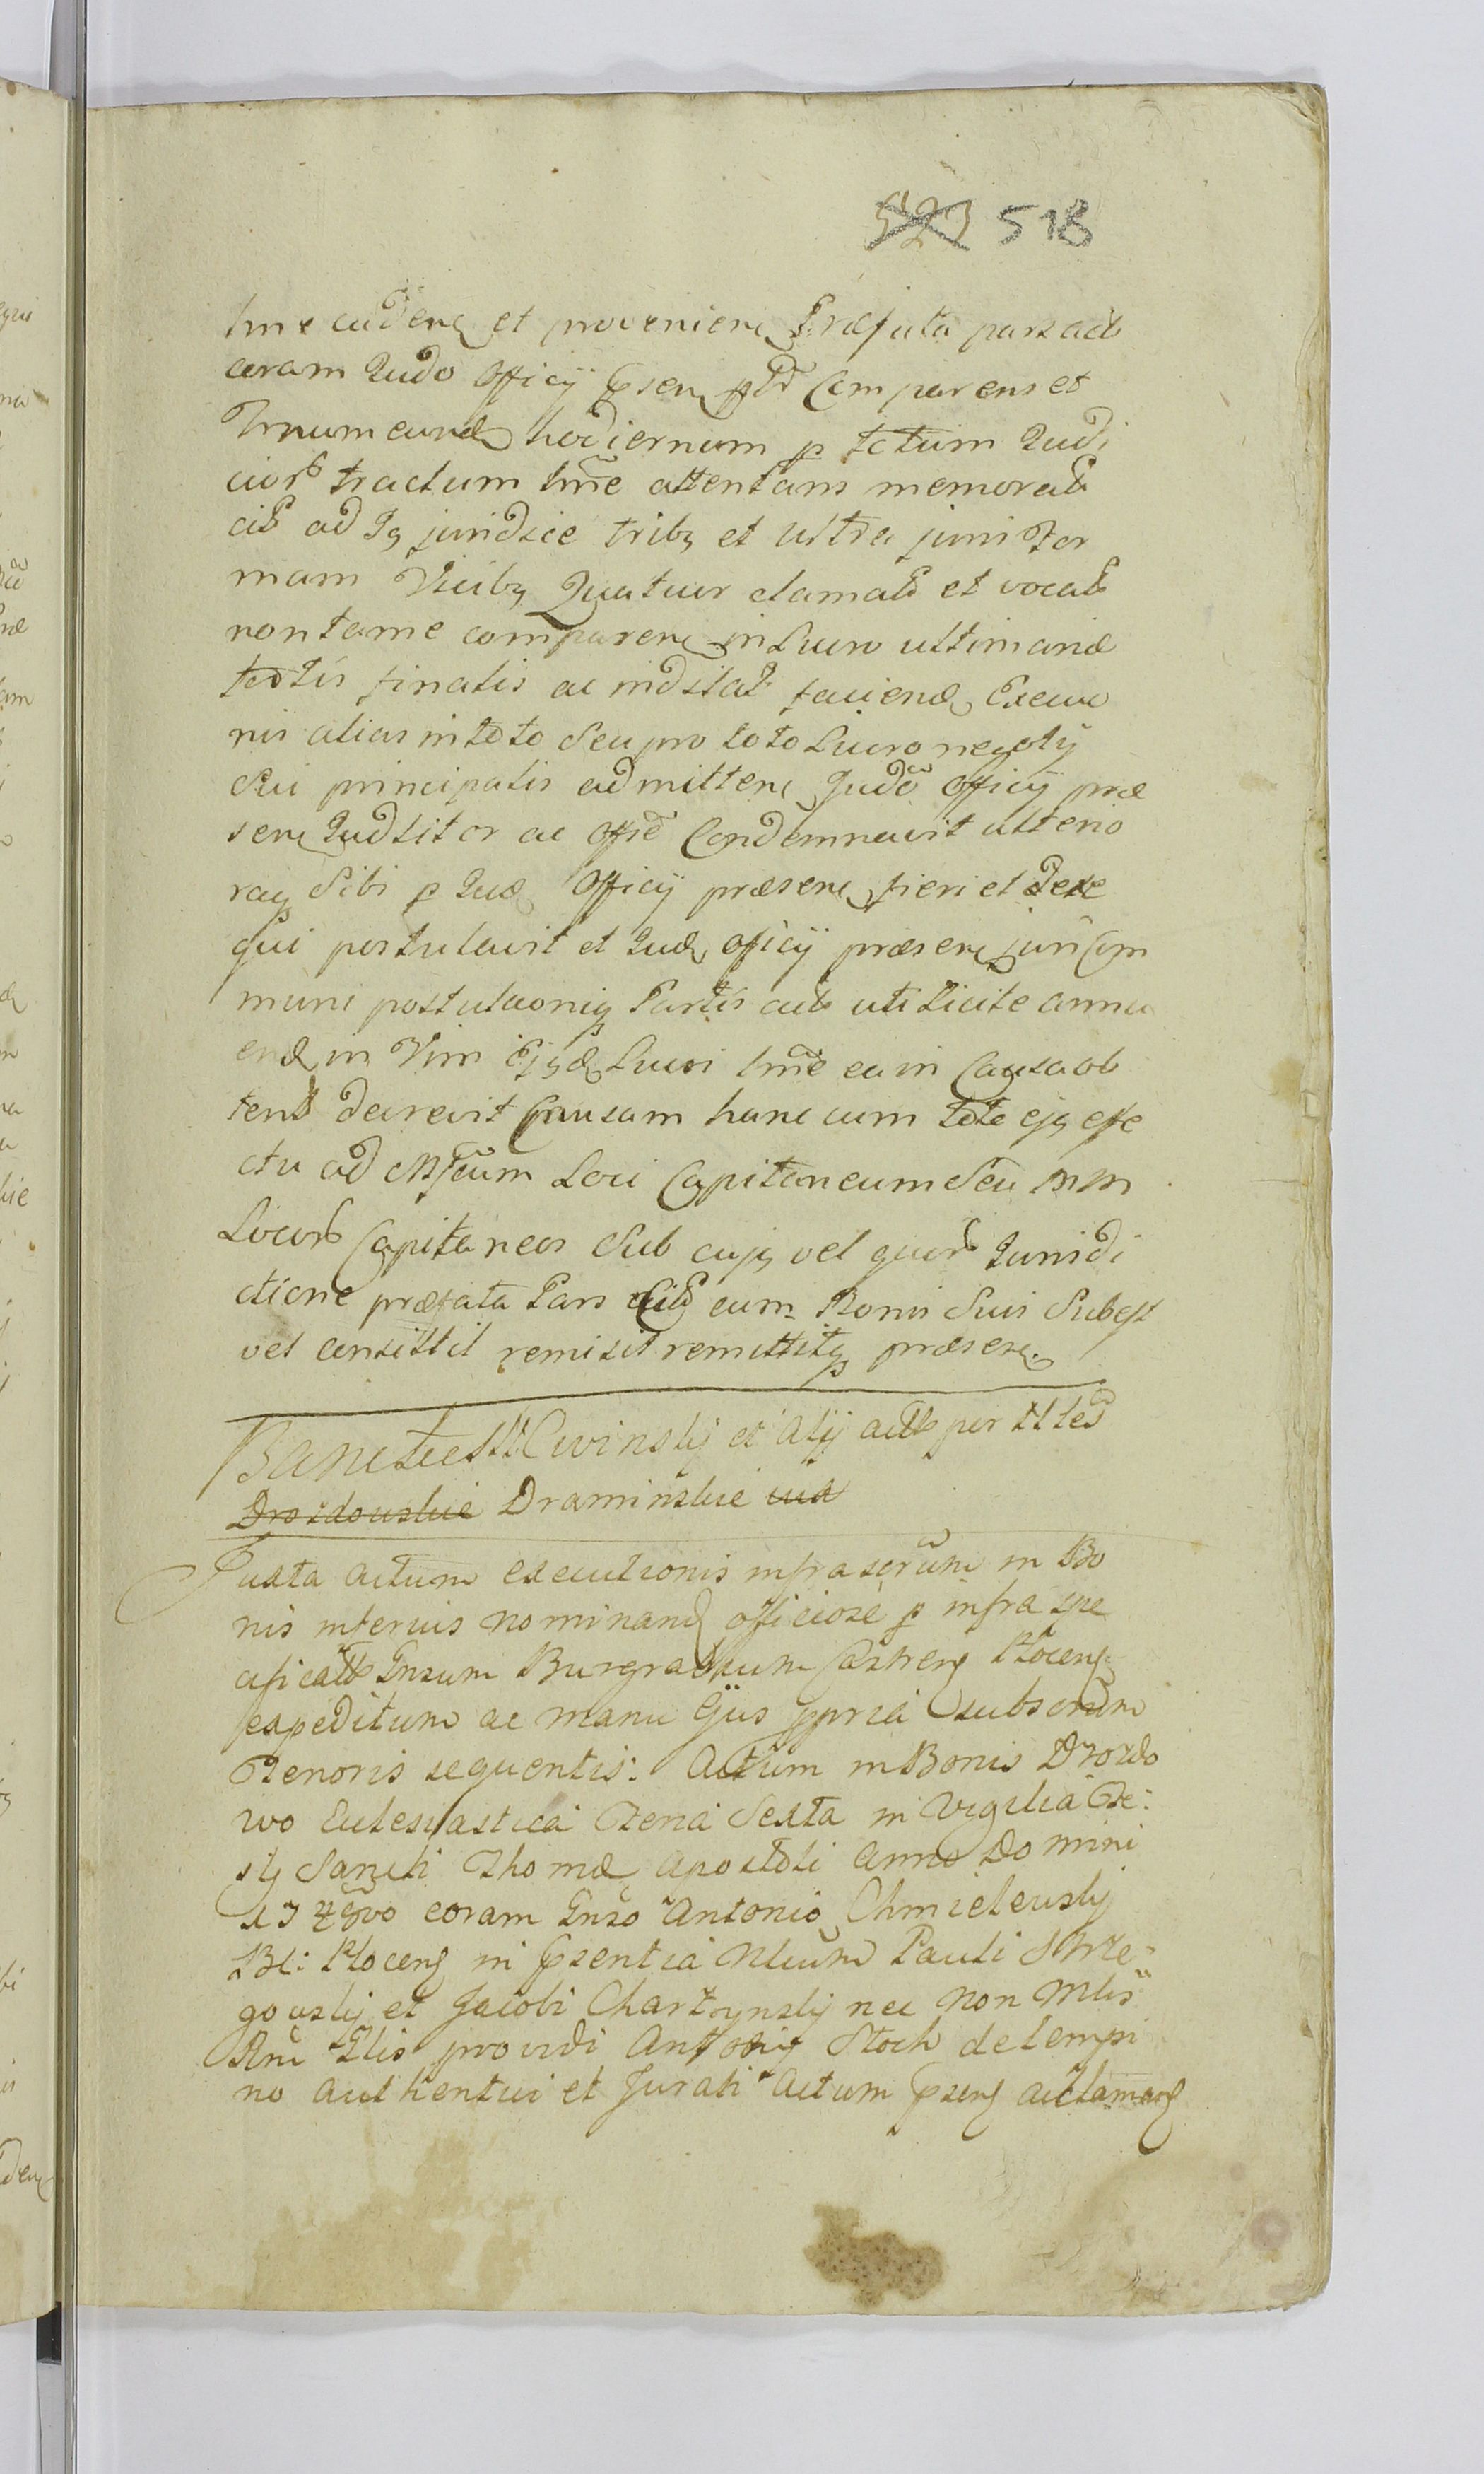 523 518
tme cadeñ et provenieñ Præfata pars act
coram Judo Officÿ pseñ ptt Comparens et
Trnum eund hodiernum p totum Judi
cior tractum tme attentans memorat
cit ad Js juridice tribq et ultra juris for
mam Vicibq Quatuor clamat et vocat
non tame compareñ in Lucro ultimariæ
finalis ac indilat faciend Execuo
nis alias in toto seu pro toto Lucro negotÿ
sui principalis admitteñ Judõ Officÿ præ
señ Judlitor ac offie Condemnavit ulterio
raq sibi p Jud Officÿ præseñ fieri et Dexe
qui postulavit et Jud officÿ præseñ juri Com
muni postulaoniq Partis act uti licite annu
end in Vim Ejqd Lucri tme ea in Causa ob
tent decrevit Causam hanc cum toto ejq effe
ctu ad Mfcum Loci Capitaneum seu MM
Locor Capitaneos sub cujq vel quor Jurisdi
ctione præfata Pars Cit cum Bonis suis subest
vel consistit remisit remittitq præseñ
Cwinskÿ et Alÿ actt per
Drozdowskie Draminskie
Juxta Actum executionis infrascrum in Bo
nis inferius nominand officiose p infra spe
cificatt Gnsum Burgrabium Castreñ Ploceñ
expeditum ac manu Ejus ppria subscrum
Tenoris sequentis: Actum in Bonis Drozdo
wo Eclesiastica Feria Sexta in Vigilia Fe:
sti Sancti Thomæ Apostoli Anno Domini
coram Gnso Antonio Chmielewskÿ
BC: Ploceñ in psentia Nlium Pauli Strze-
gowskÿ et Jacobi Chartzynskÿ nec non Mtis
Rni Glis providi Antonÿ Stoch de Lempi
no Authentici et Jurati Actum pseñ acclamañ